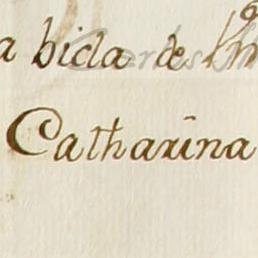 a bida de
Catharina